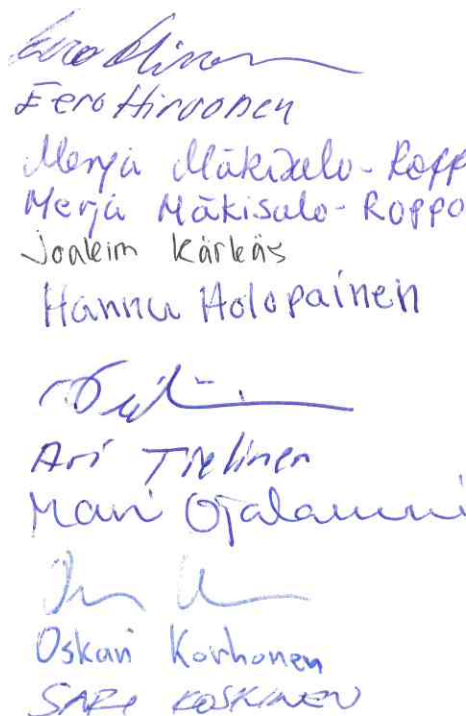 Eero Hirvonen
Merja Mäkisalo-Ropp
Merja Mäkisalo-Roppo
Joakim Kärkäs
Hannu Holopainen
Ari Tielinen
Mari Ojalammi
Oskari Korhonen
SARI KOSKINEN